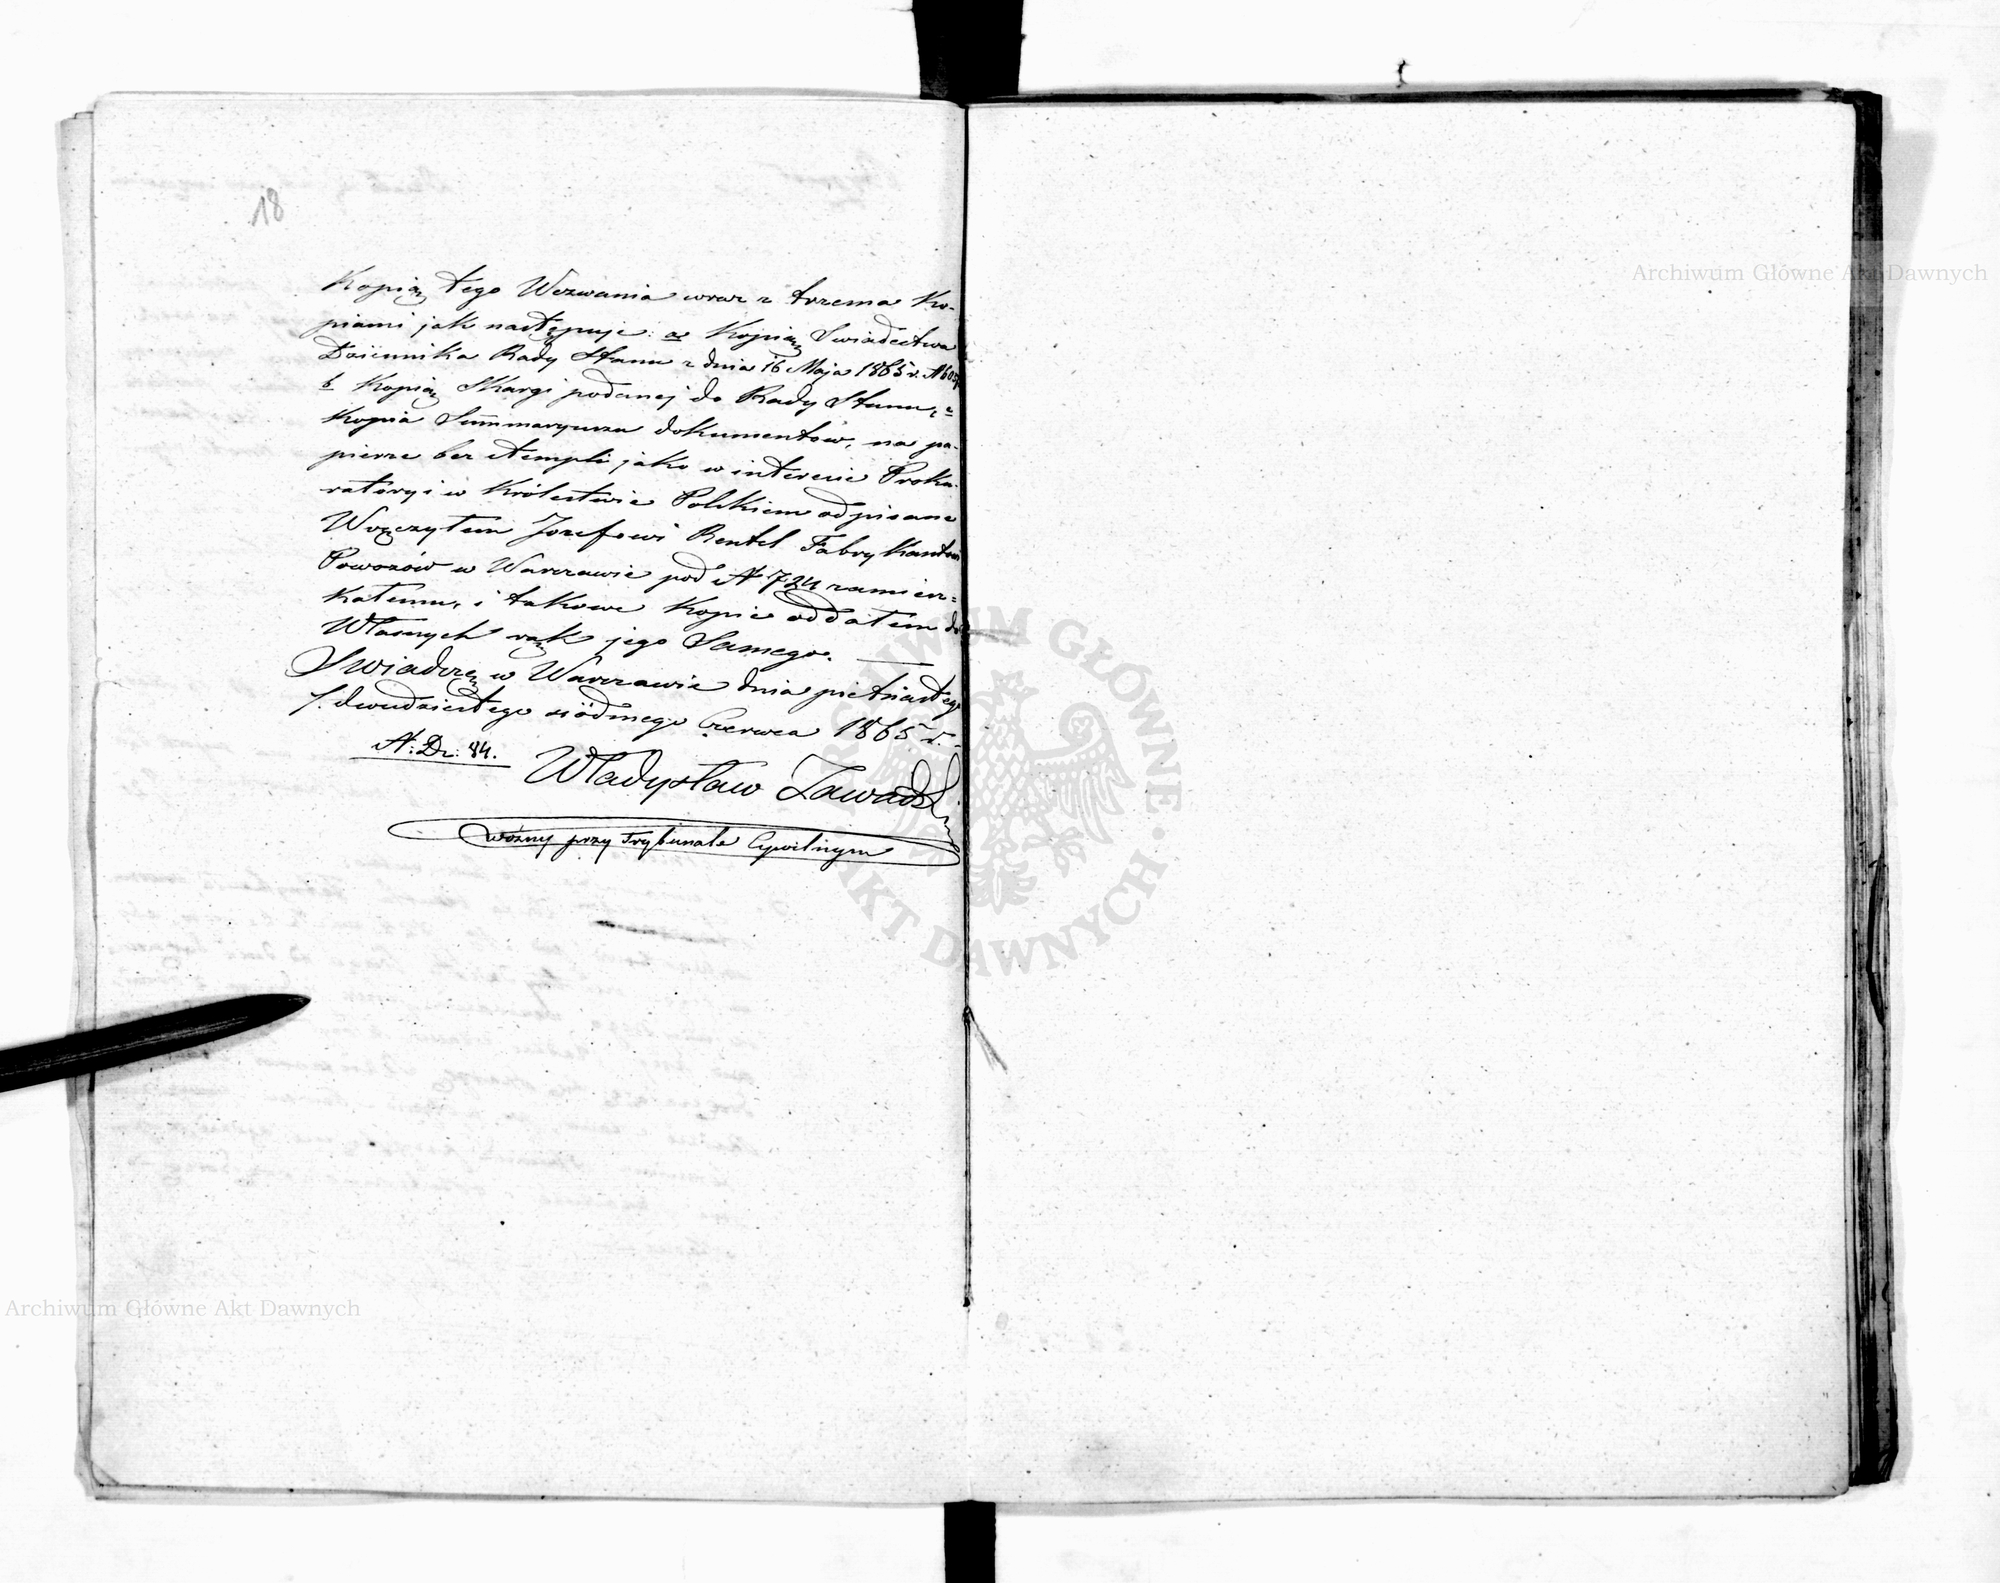 18
Kopią tego Wezwania wraz z trzema Ko-
piami jak następuje: a Kopią Swiadectwa
Dziennika Rady Stanu z dnia 16 Maja 1865 r. N
b Kopią Skargi podanej do Rady Stanu, c
Kopia Summaryusza dokumentów, na pa-
pierze bez stempli jako w interesie Proku-
ratoryi w Królestwie Polskiem odpisane
Wręczyłem Jozefowi Rentel Fabrykantowi
Powozów w Warszawie pod N 724 zamiesz=
kałemu, i takowe Kopie oddałem do
Własnych rąk jego Samego. —
Swiadczę w Warszawie dnia pietnastego
/. dwudziestego siódmego Czerwca 1865 r. -
N: Dz: 84.
Władysław Zawadzki
woźny przy Trybunale Cywilnym
Archiwum Główne Akt Dawnych
Archiwum Główne Akt Dawnych
ARCHIWUM GŁÓWNE · AKT DAWNYCH ·